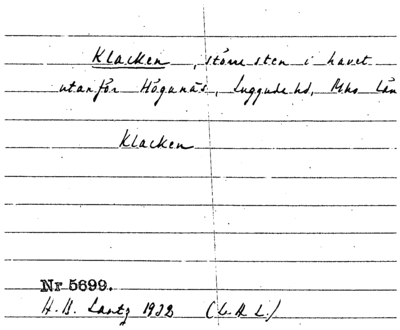 Klacken, större sten i havet
utanför Höganäs, Luggude hd, Mhs län
Klacken
Nr 5699.
H. B. Lantz 1932 (L.H.L.)